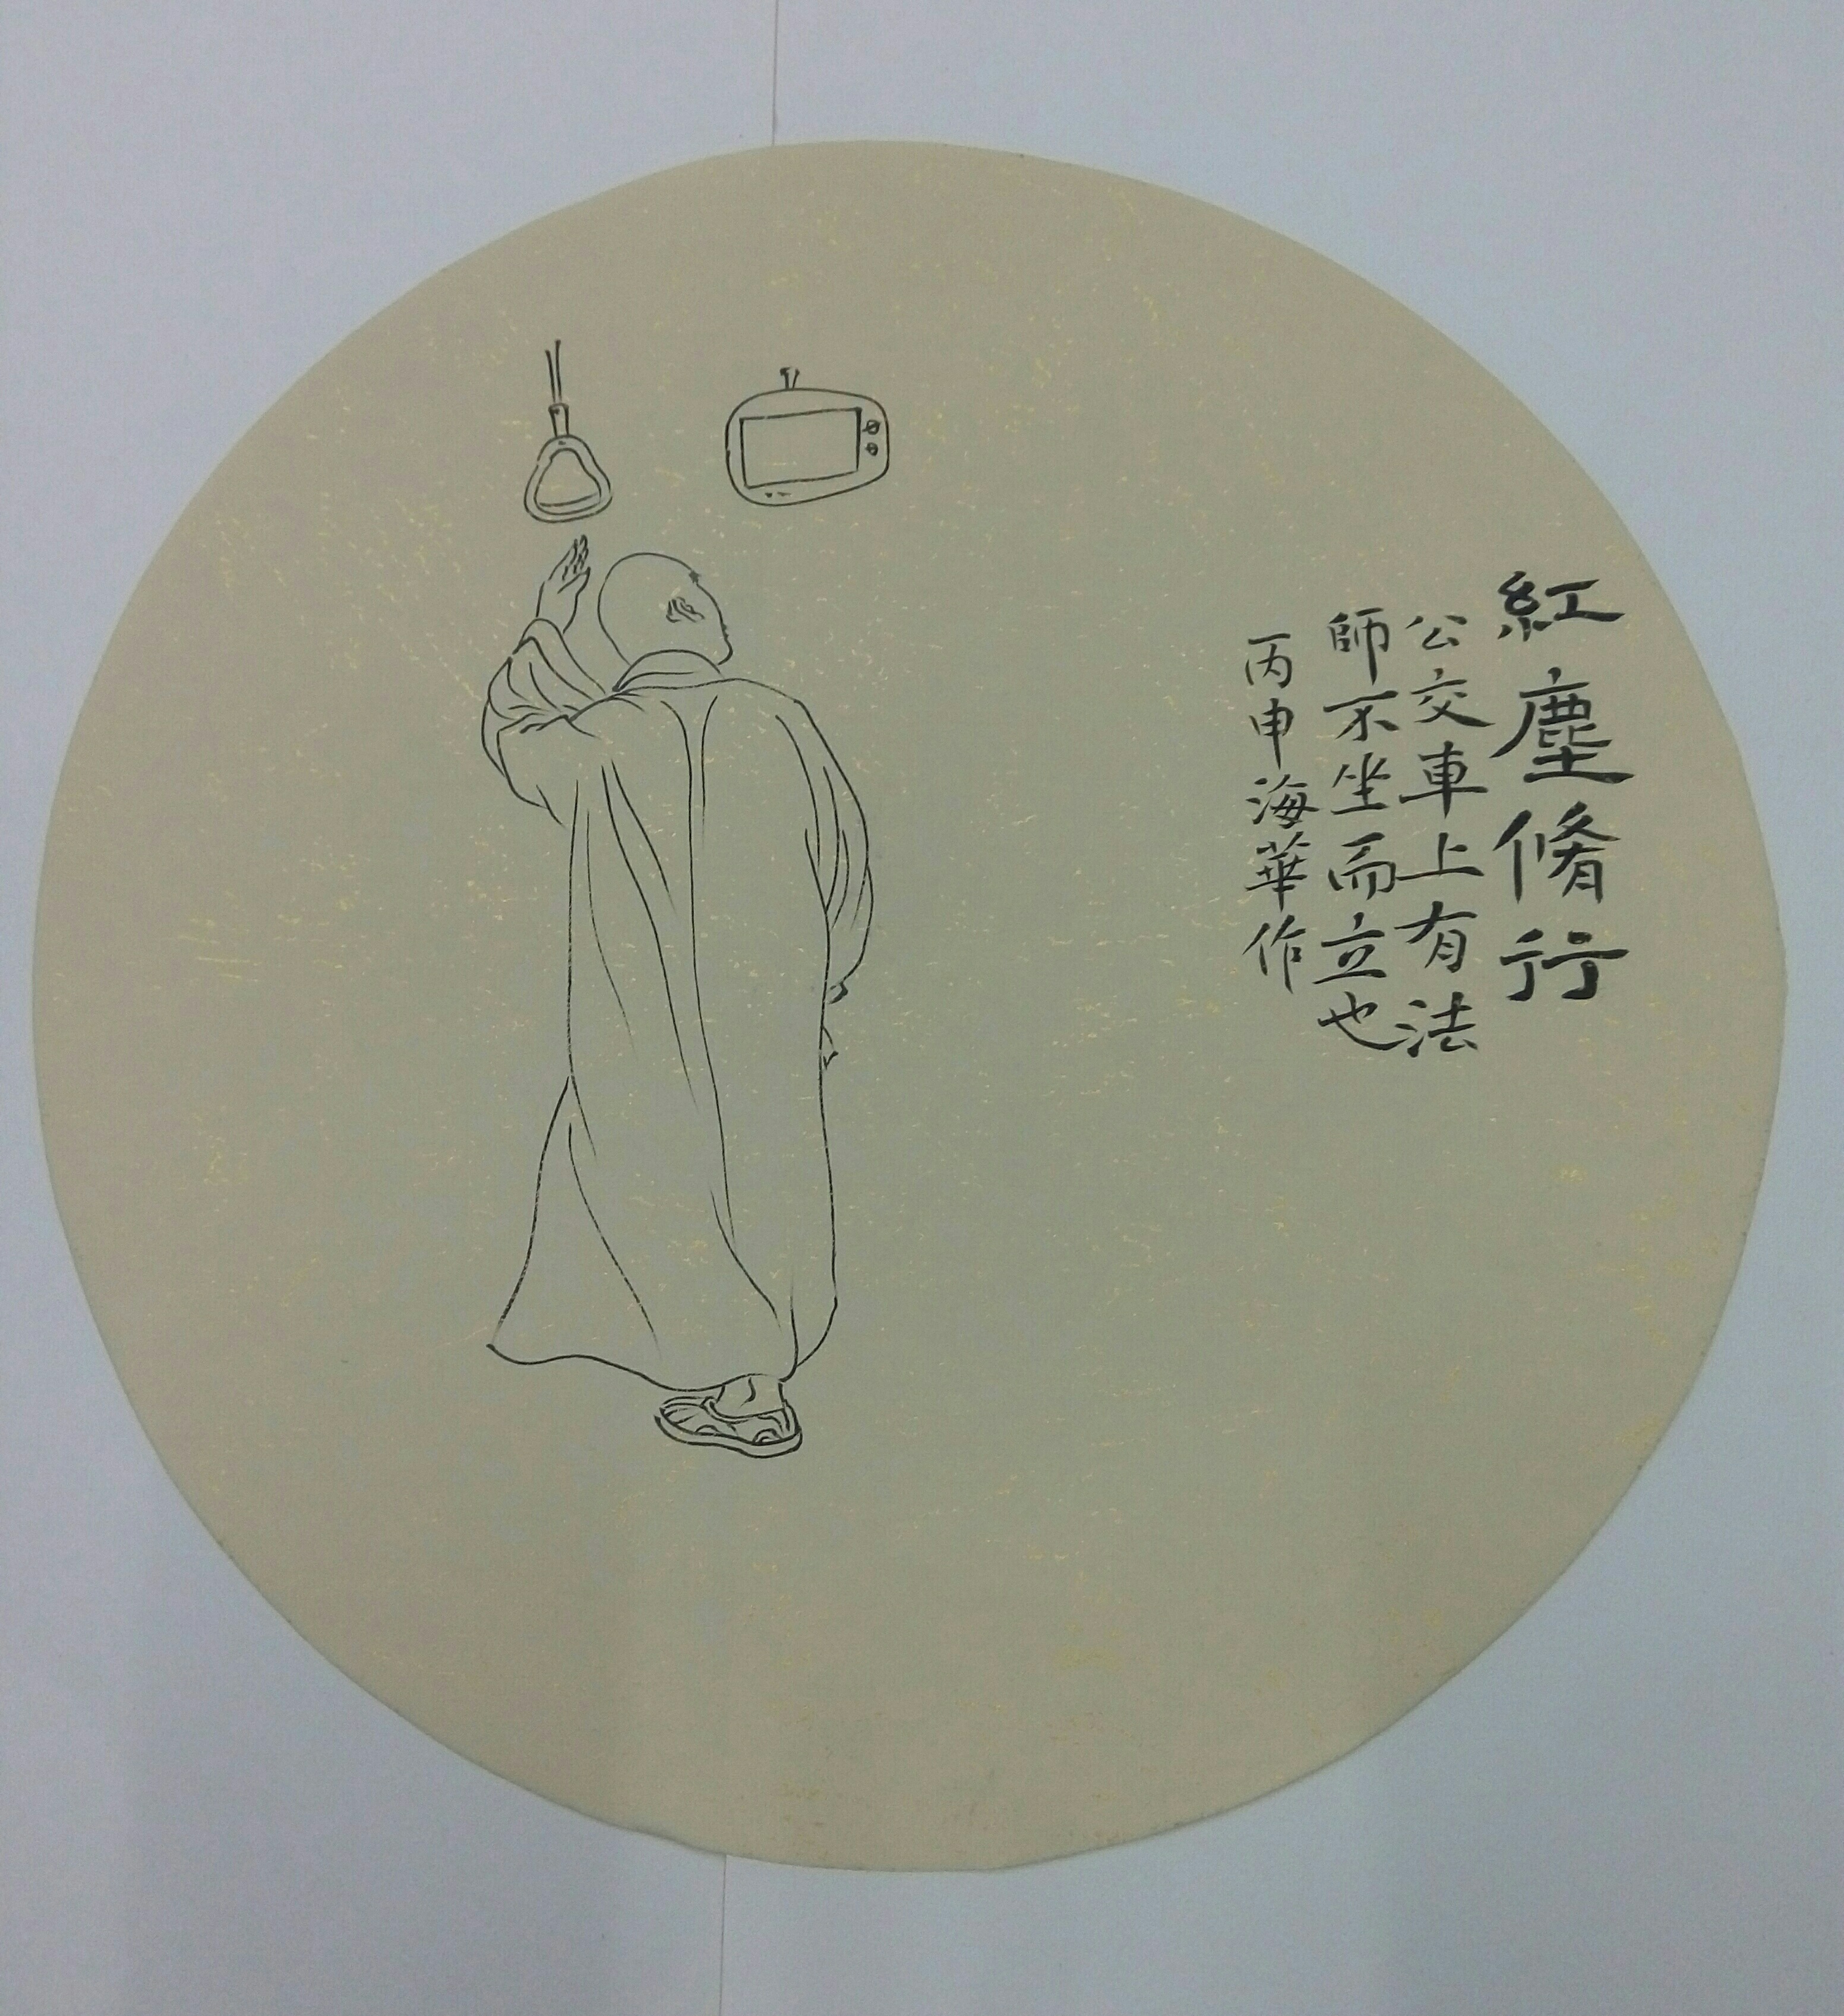 紅塵脩行
公交車上有法
師不坐而立也
丙申海華作